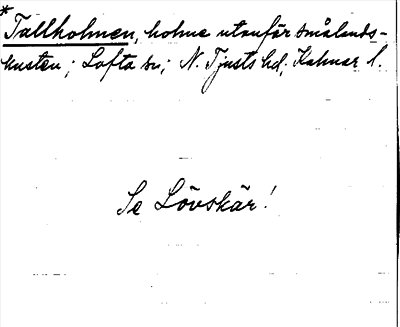 *
Tallholmen, holme utanför smålands-
kusten; Lofta sn; N. Tjusts hd; Kalmar l.
Se Lövskär!